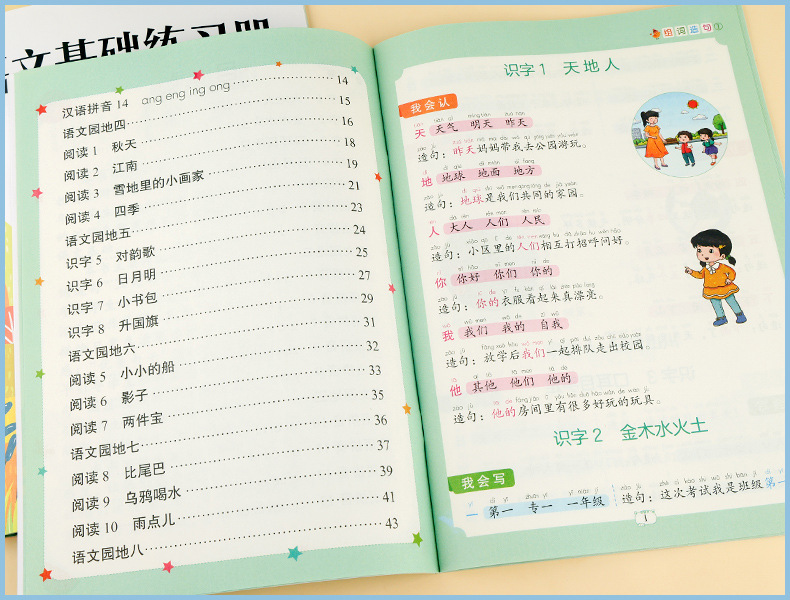 语文基础练习册
汉语拼音 14 ang eng ing ong 14
语文园地四 15
阅读 1 秋天 16
阅读 2 江南 18
阅读 3 雪地里的小画家 19
阅读 4 四季 21
语文园地五 23
识字 5 对韵歌 24
识字 6 日月明 25
识字 7 小书包 27
识字 8 升国旗 29
语文园地六 31
阅读 5 小小的船 32
阅读 6 影子 33
阅读 7 两件宝 35
语文园地七 36
阅读 8 比尾巴 37
阅读 9 乌鸦喝水 39
阅读 10 雨点儿 41
语文园地八 43
组词造句①
识字 1 天地人
我会认
天 天气 明天 昨天
造句：昨天妈妈带我去公园游玩。
地 地球 地面 地方
造句：地球是我们共同的家园。
人 大人 人们 人民
造句：小区里的人们相互打招呼问好。
你 你好 你们 你的
造句：你的衣服看起来真漂亮。
我 我们 我的 自我
造句：放学后我们一起排队走出校园。
他 其他 他们 他的
造句：他的房间里有很多好玩的玩具。
识字 2 金木水火土
我会写
一 第一 专一 一年级 造句：这次考试我是班级第一
1